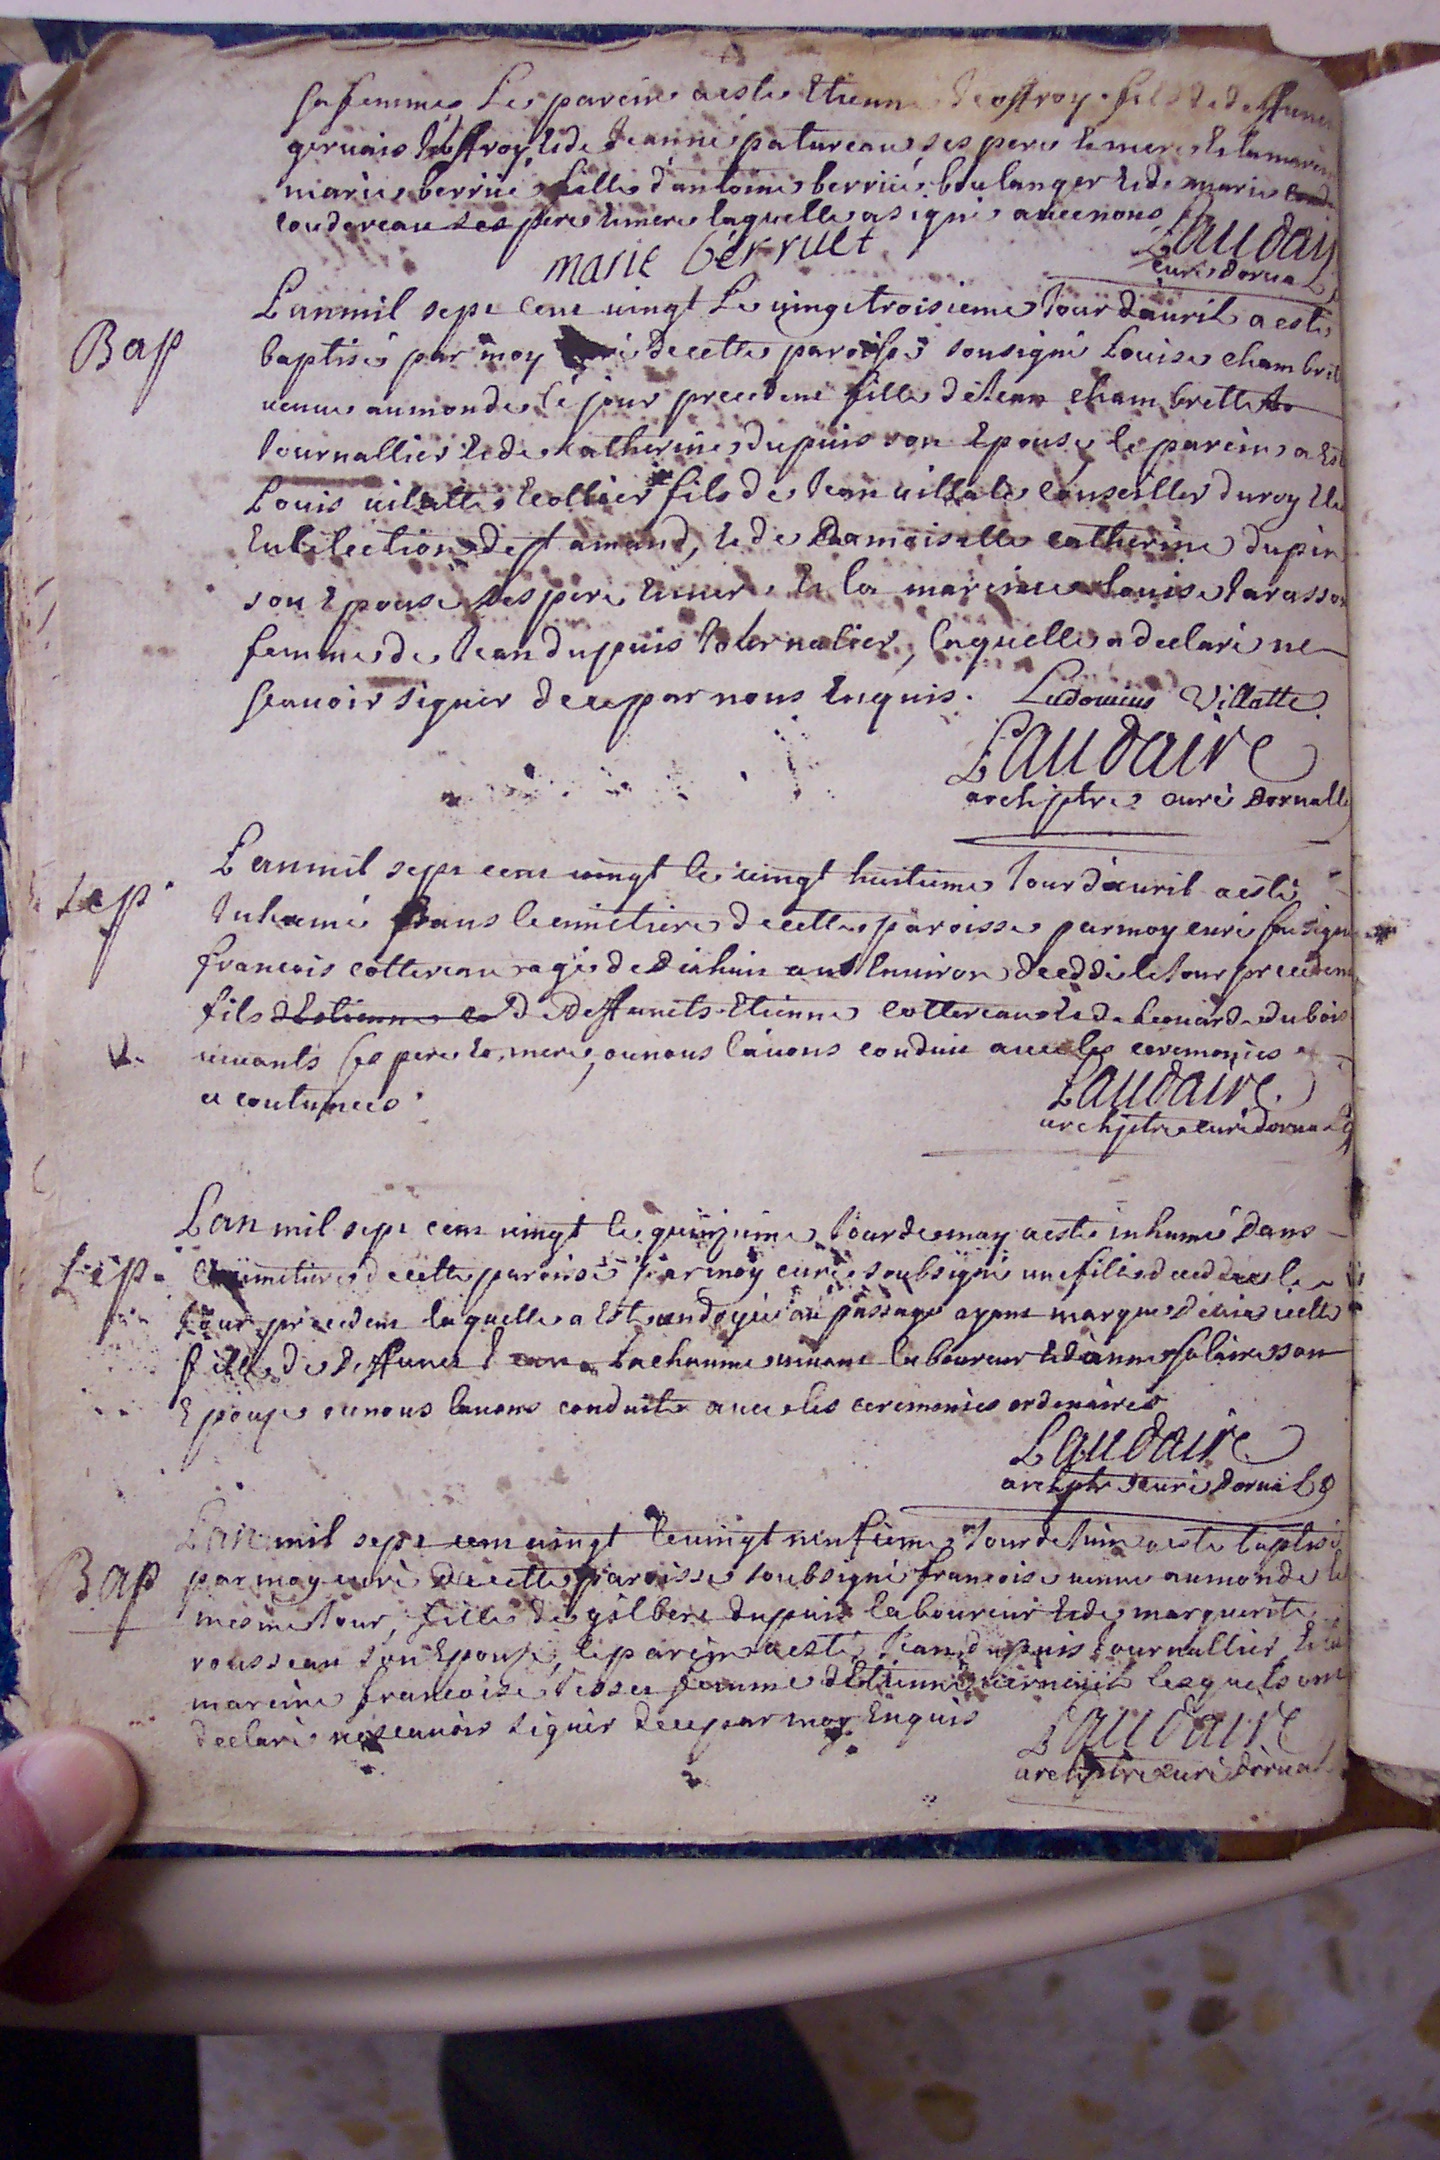 sa femme, Le parein a esté Etienne Jeoffroy fils de deffunct
geruais Jeoffroy, et de Jeanne patureau ses pere et mere et la mareine
marie berrüé fille d'antoine berrüé boulanger et de marie
coudereau ses pere et mere laquelle a signé auec nous
marie berruet Laudair
curé dorual
Bap
L'an mil sept cent uingt Le uingt troisieme Jour d'auril a esté
baptisé par moy curé de cette paroisse sousigné Louise chambrette
uenue au monde le jour precedent fille de Jean chambrette
Journallier et de Catherine dupuis son Epouse le parein a esté
Louis uilatte Ecollier fils de Jean uillate conseiller du roy Elu
En l'election de st amand, et de Damoiselle catherine dupin
son Epouse ses pere et mere et la mareine Louise tarasson
femme de Jean dupuis Journalier, laquelle a declaré ne
scauoir signer de ce par nous Enquis. Ludouicus Villatte
Laudaire
archiptre curé Dorualle
Sep
L'an mil sept cent uingt le uingt huitieme Jour d'auril a esté
Inhumé dans le cimetiere de cette paroisse par moy curé sousigné
francois cottereau agé de dixhuit ans Enuiron decedé le Jour precedent
fils de deffuncts Etienne cottereau et de Leonarde dubois
uiuants ses pere et mere, ou nous l'auons conduit auec les ceremonies
acoutumées Laudaire
archiptre curé dorual
Sep
L'an mil sept cent uingt le quinzieme Jour de may a esté inhumé dans
le cimetiere de cette paroisse par moy curé soubsigné une fille decedée le
Jour precedent laquelle a esté ondoyée au passage ayant marque de uie icelle
fille de deffunct Jean Lachaume uiuant laboureur et d'anne solaire son
Epouse ou nous l'auons conduite auec les ceremonies ordinaires
Laudaire
archiptre curé dorual
Bap
L'an mil sept cent uingt le uingt neufieme Jour de Juin a esté baptisé
par moy curé de cette paroisse soubsigné francoise uenue au monde le
mesme Jour, fille de gilbert dupuis laboureur et de marguerite
rousseau son Epouse, le parein a esté Jean dupuis Journallier et la
mareine francoise Tessier femme d'Etienne uerneuil lesquels ont
declaré ne scauoir signer de ce par moy Enquis Laudaire
archiptre curé dorual